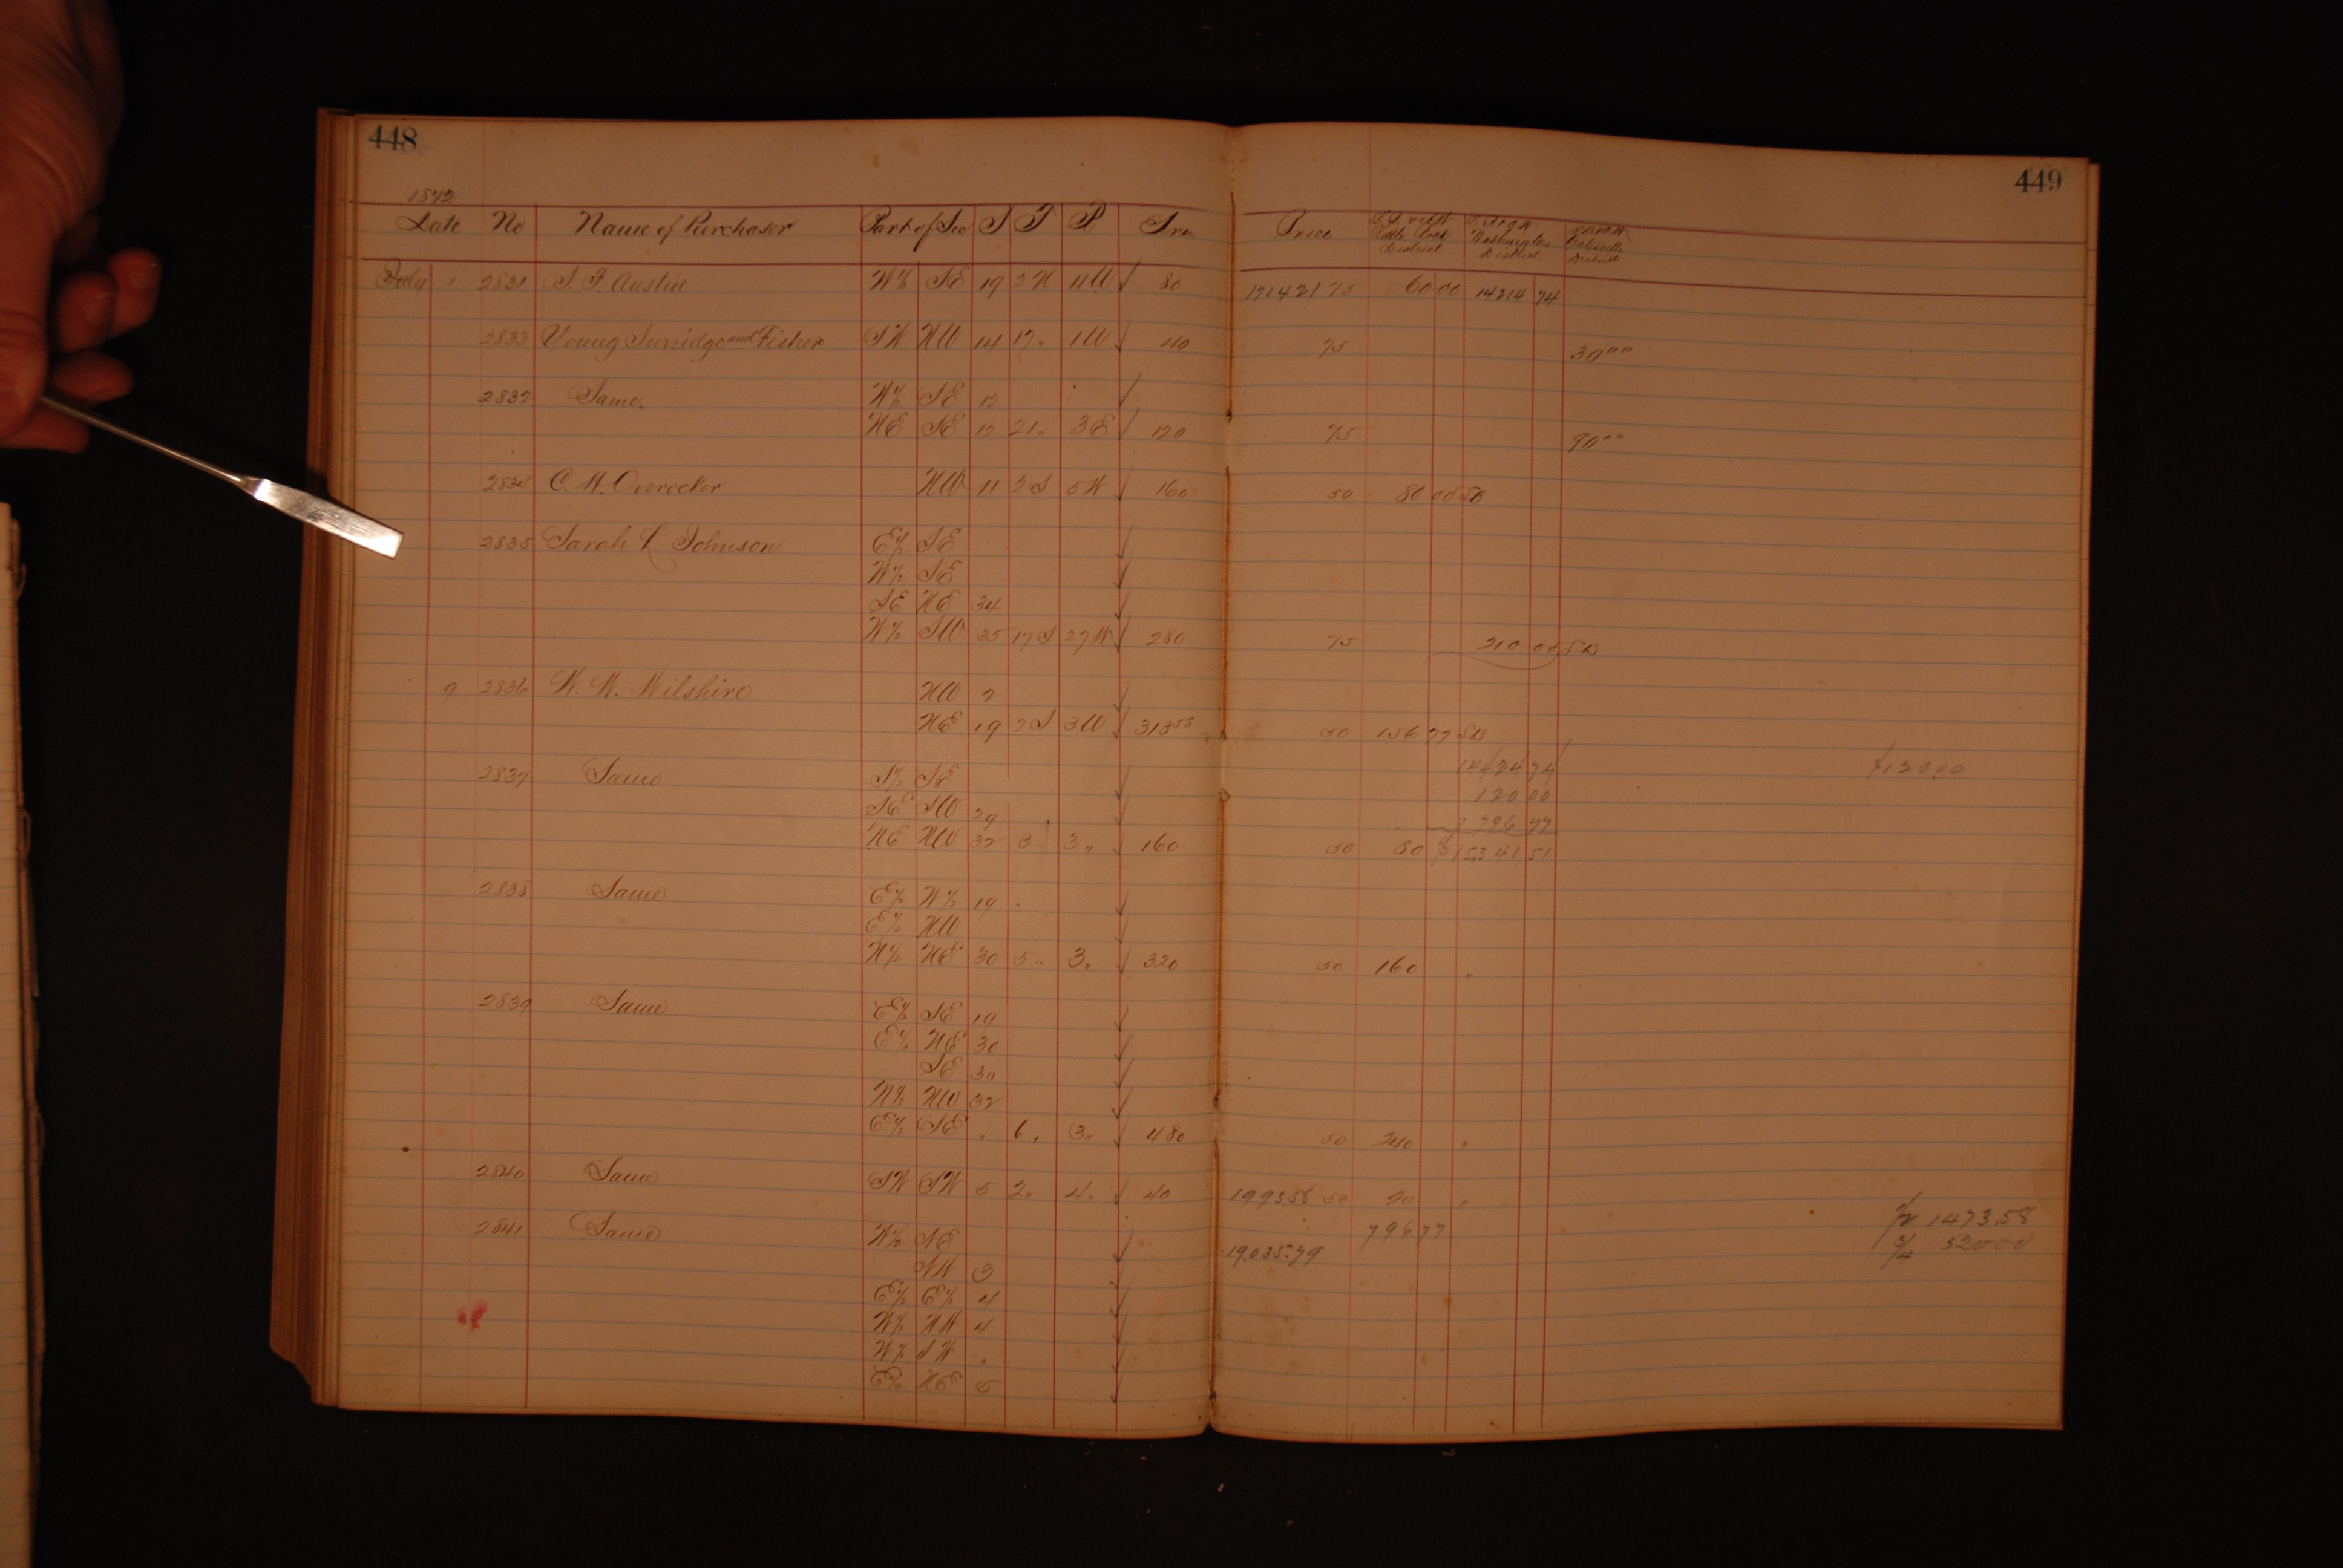 448
449
1872
Date No Name of Purchaser Part of Sec S T R Area Price Little Rock District Washington District Batesville District
July 1 2831 S. F. Austin W½ SE 19 2 N 11 W 80 17042175 75 60 00 14214 74
2833 Young Surridge and Fisher SW NW 14 17 „ 1 W 40 75 30 00
2832 Same. W½ SE 12
NE SE 12 21 „ 3 E 120 75 90 00
2834 C. M. Overocker NW 11 2 S 5 W 160 50 80 00 SB
2835 Sarah L. Johnson E½ SE
W½ SE
SE NE 34
W½ SW 35 17 S 27 W 280 75 210 00 SB
9 2836 W. W. Wilshire NW 2
NE 19 2 S 3 W 313 55 50 156 77 SB
14424 74 $120.00
2837 Same S½ SE
120 00
SE SW 29
796 77
NE NW 32 3 „ 3 „ 160 50 80 $15341 51
2838 Same E½ W½ 19
E½ NW
N½ NE 30 5 „ 3 „ 320 50 160 „
2839 Same E½ SE 19
E½ NE 30
SE 3„
N½ NW 32
E½ SE „ 6 „ 3 „ 480 50 240 „
2840 Same SW SW 5 2 „ 4 „ 40 1993.58 50 20 „
½ 1473.58
796 77
2841 Same W½ NE
19.035.79
¾ 520 00
SW 3
E½ E½ 4
W½ NW 4
W½ SW „
E½ NE 5